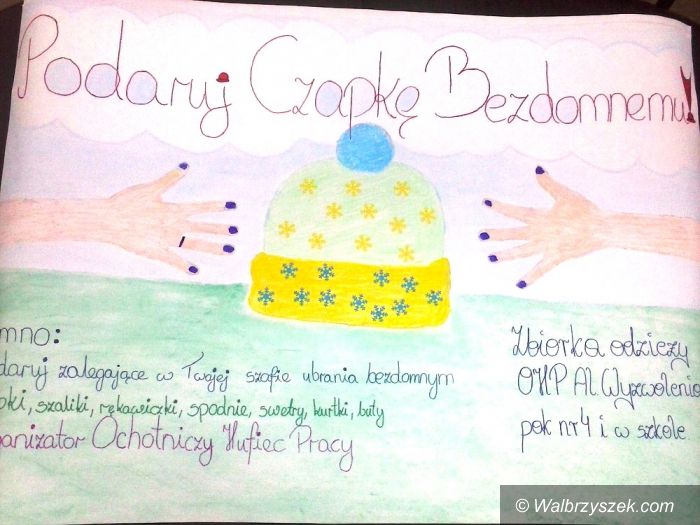 Podaruj Czapkę Bezdomnemu!
mno:
daruj zalegające w Twojej szafie ubrania bezdomnym
pki, szaliki, rękawiczki, spodnie, swetry, kurtki, buty
ganizator Ochotniczy Hufiec Pracy
Zbiórka odzieży
OHP Al. Wyzwolenia
pok nr 4 i w szkole
© Walbrzyszek.com